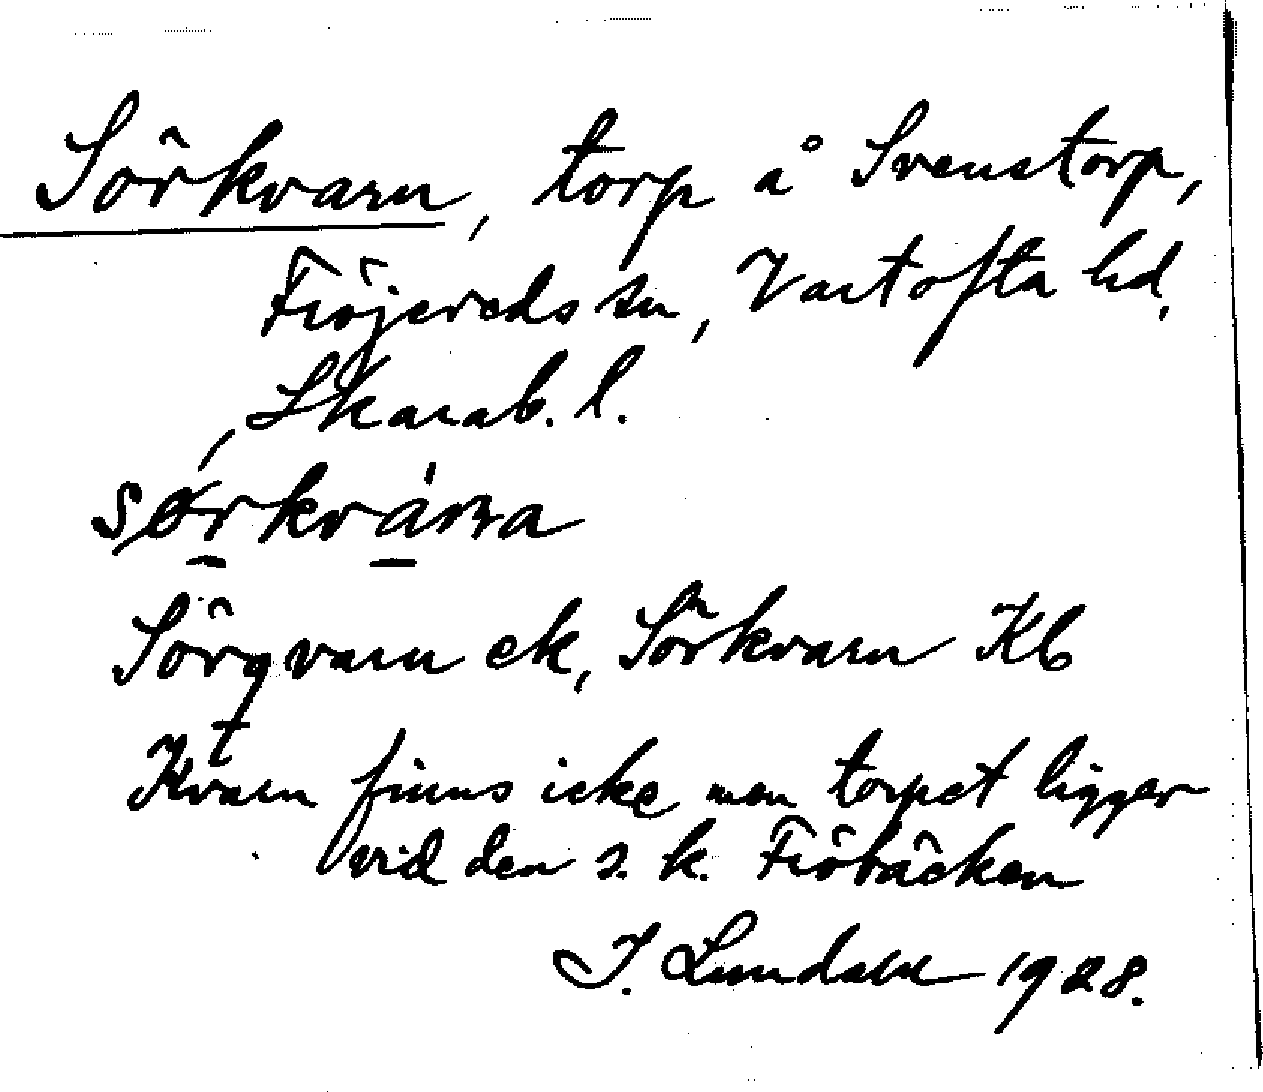 Sörkvarn, torp å Svenstorp,
Fröjereds sn, Vartofta hd,
Skarab. l.
Sörqvarn ek, Sörkvarn Kb
Kvarn finns icke men torpet ligger
vid den s. k. Fröbäcken
I. Lundahl 1928.